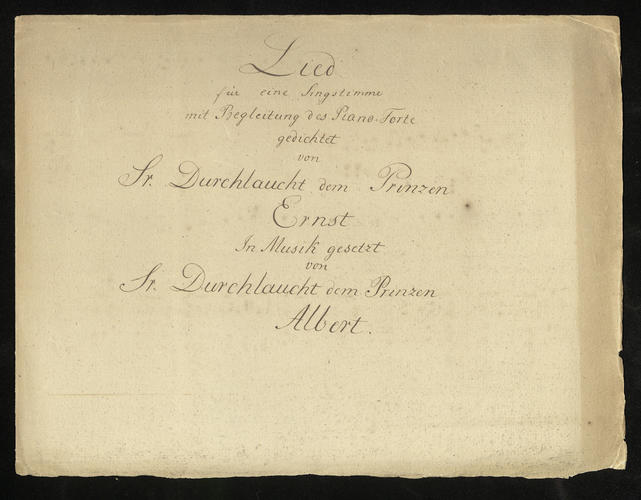 Lied
für eine Singstimme
mit Begleitung des Piano-Forte
gedichtet
von
Sr. Durchlaucht dem Prinzen
Ernst
In Musik gesetzt
von
Sr. Durchlaucht dem Prinzen
Albert.